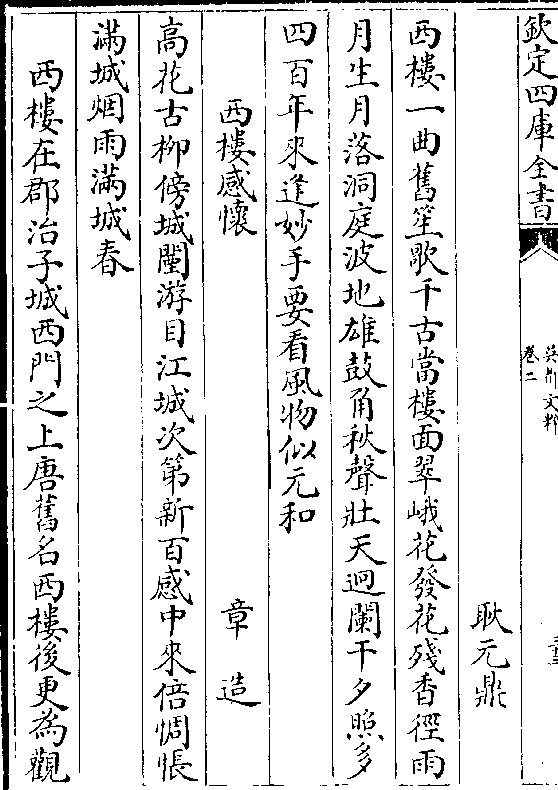 欽定四庫全書
吳都文粹
卷二
耿元鼎
西樓一曲舊笙歌千古當樓面翠峨花發花殘香徑雨
月生月落洞庭波地雄鼓角秋聲壯天迥闌干夕照多
四百年來逢妙手要看風物似元和
西樓感懷
章造
高花古柳傍城闉游目江城次第新百感中來倍惆悵
滿城烟雨滿城春
西樓在郡治子城西門之上唐舊名西樓後更為觀